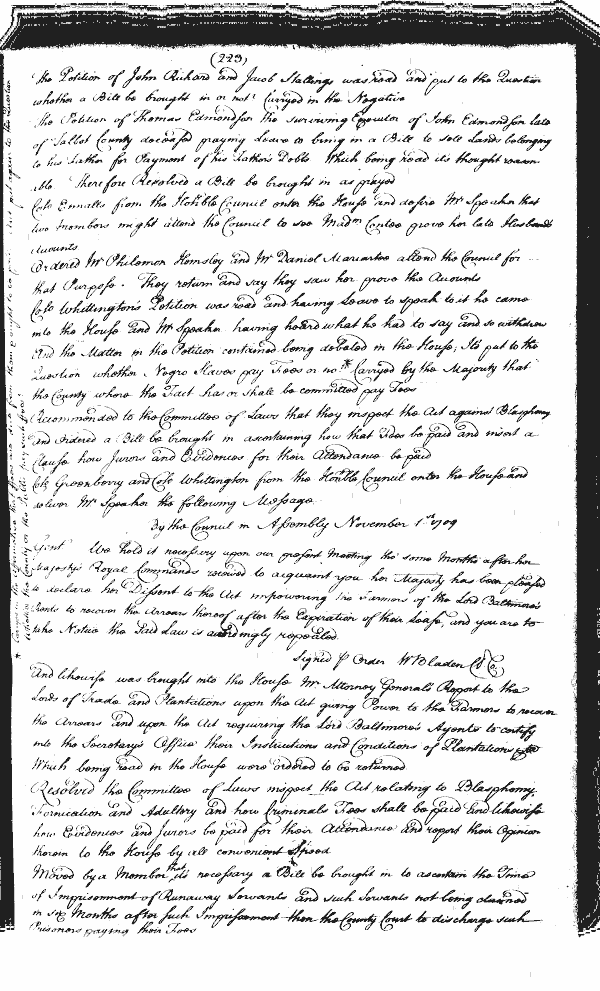 (223)
the Petition of John Richard and Jacob Stallings was read and put to the Question
whether a Bill be brought in or not? Carryed in the Negative
The Petition of Thomas Edmondson the surviving Executor of John Edmondson late
of Talbot County deceased praying Leave to bring in a Bill to sell Lands belonging
to his Father for Payment of his Father's Debts Which being read its thought reason
able Therefore Resolved a Bill be brought in as prayed
Colo Ennalls from the Honble Council enter the House and desire Mr Speaker that
two members might attend the Council to see Madm Contee prove her late Husbands
Accounts
Ordered Mr Philemon Hemsley and Mr Daniel Mariartee attend the Council for
that Purpose. They return and say they saw her prove the Accounts
Colo Whittington's Petition was read and having Leave to speak to it he came
into the House and Mr Speaker having heard what he had to say and so withdrew
And the Matter in the Petition contained being debated in the House, Its put to the
Question whether Negro Slaves pay Fees or no? Carryed by the Majority that
the County where the Fact has or shall be committed pay Fees
Recommended to the Committee of Laws that they inspect the Act against Blasphemy
and ordered a Bill be brought in ascertaining how that Fees be paid and insert a
Clause how Jurors and Evidences for their Attendance be paid
Colo Greenberry and Colo Whittington from the Honble Council enter the House and
deliver Mr Speaker the following Message
By the Council in Assembly November 1st 1709
Gent We hold it necessary upon our present Meeting the same Months after her
Majesty's Royal Commands received to acquaint you her Majesty has been pleased
to declare her Dissent to the Act impowering the Farmers of the Lord Baltimore's
Rents to recover the Arrears thereof after the Expiration of their Lease, and you are to
take Notice the said Law is accordingly repealed
Signed p Order W Bladen Cl C
And likewise was brought into the House Mr Attorney General's Report to the
Lords of Trade and Plantations upon the Act giving Power to the Farmers to recover
the Arrears and upon the Act requiring the Lord Baltimore's Agents to certify
into the Secretary's Office their Instructions and Conditions of Plantations
Which being read in the House were ordered to be returned
Resolved the Committee of Laws inspect the Act relating to Blasphemy
Fornication and Adultery and how Criminals Fees shall be paid And likewise
how Evidences and Jurors be paid for their Attendance and report their Opinion
therein to the House by all convenient Speed
Moved by a Member that its necessary a Bill be brought in to ascertain the Time
of Imprisonment of Runaway Servants and such Servants not being claimed
in six Months after such Imprisonment then the County Court to discharge such
Prisoners paying their Fees